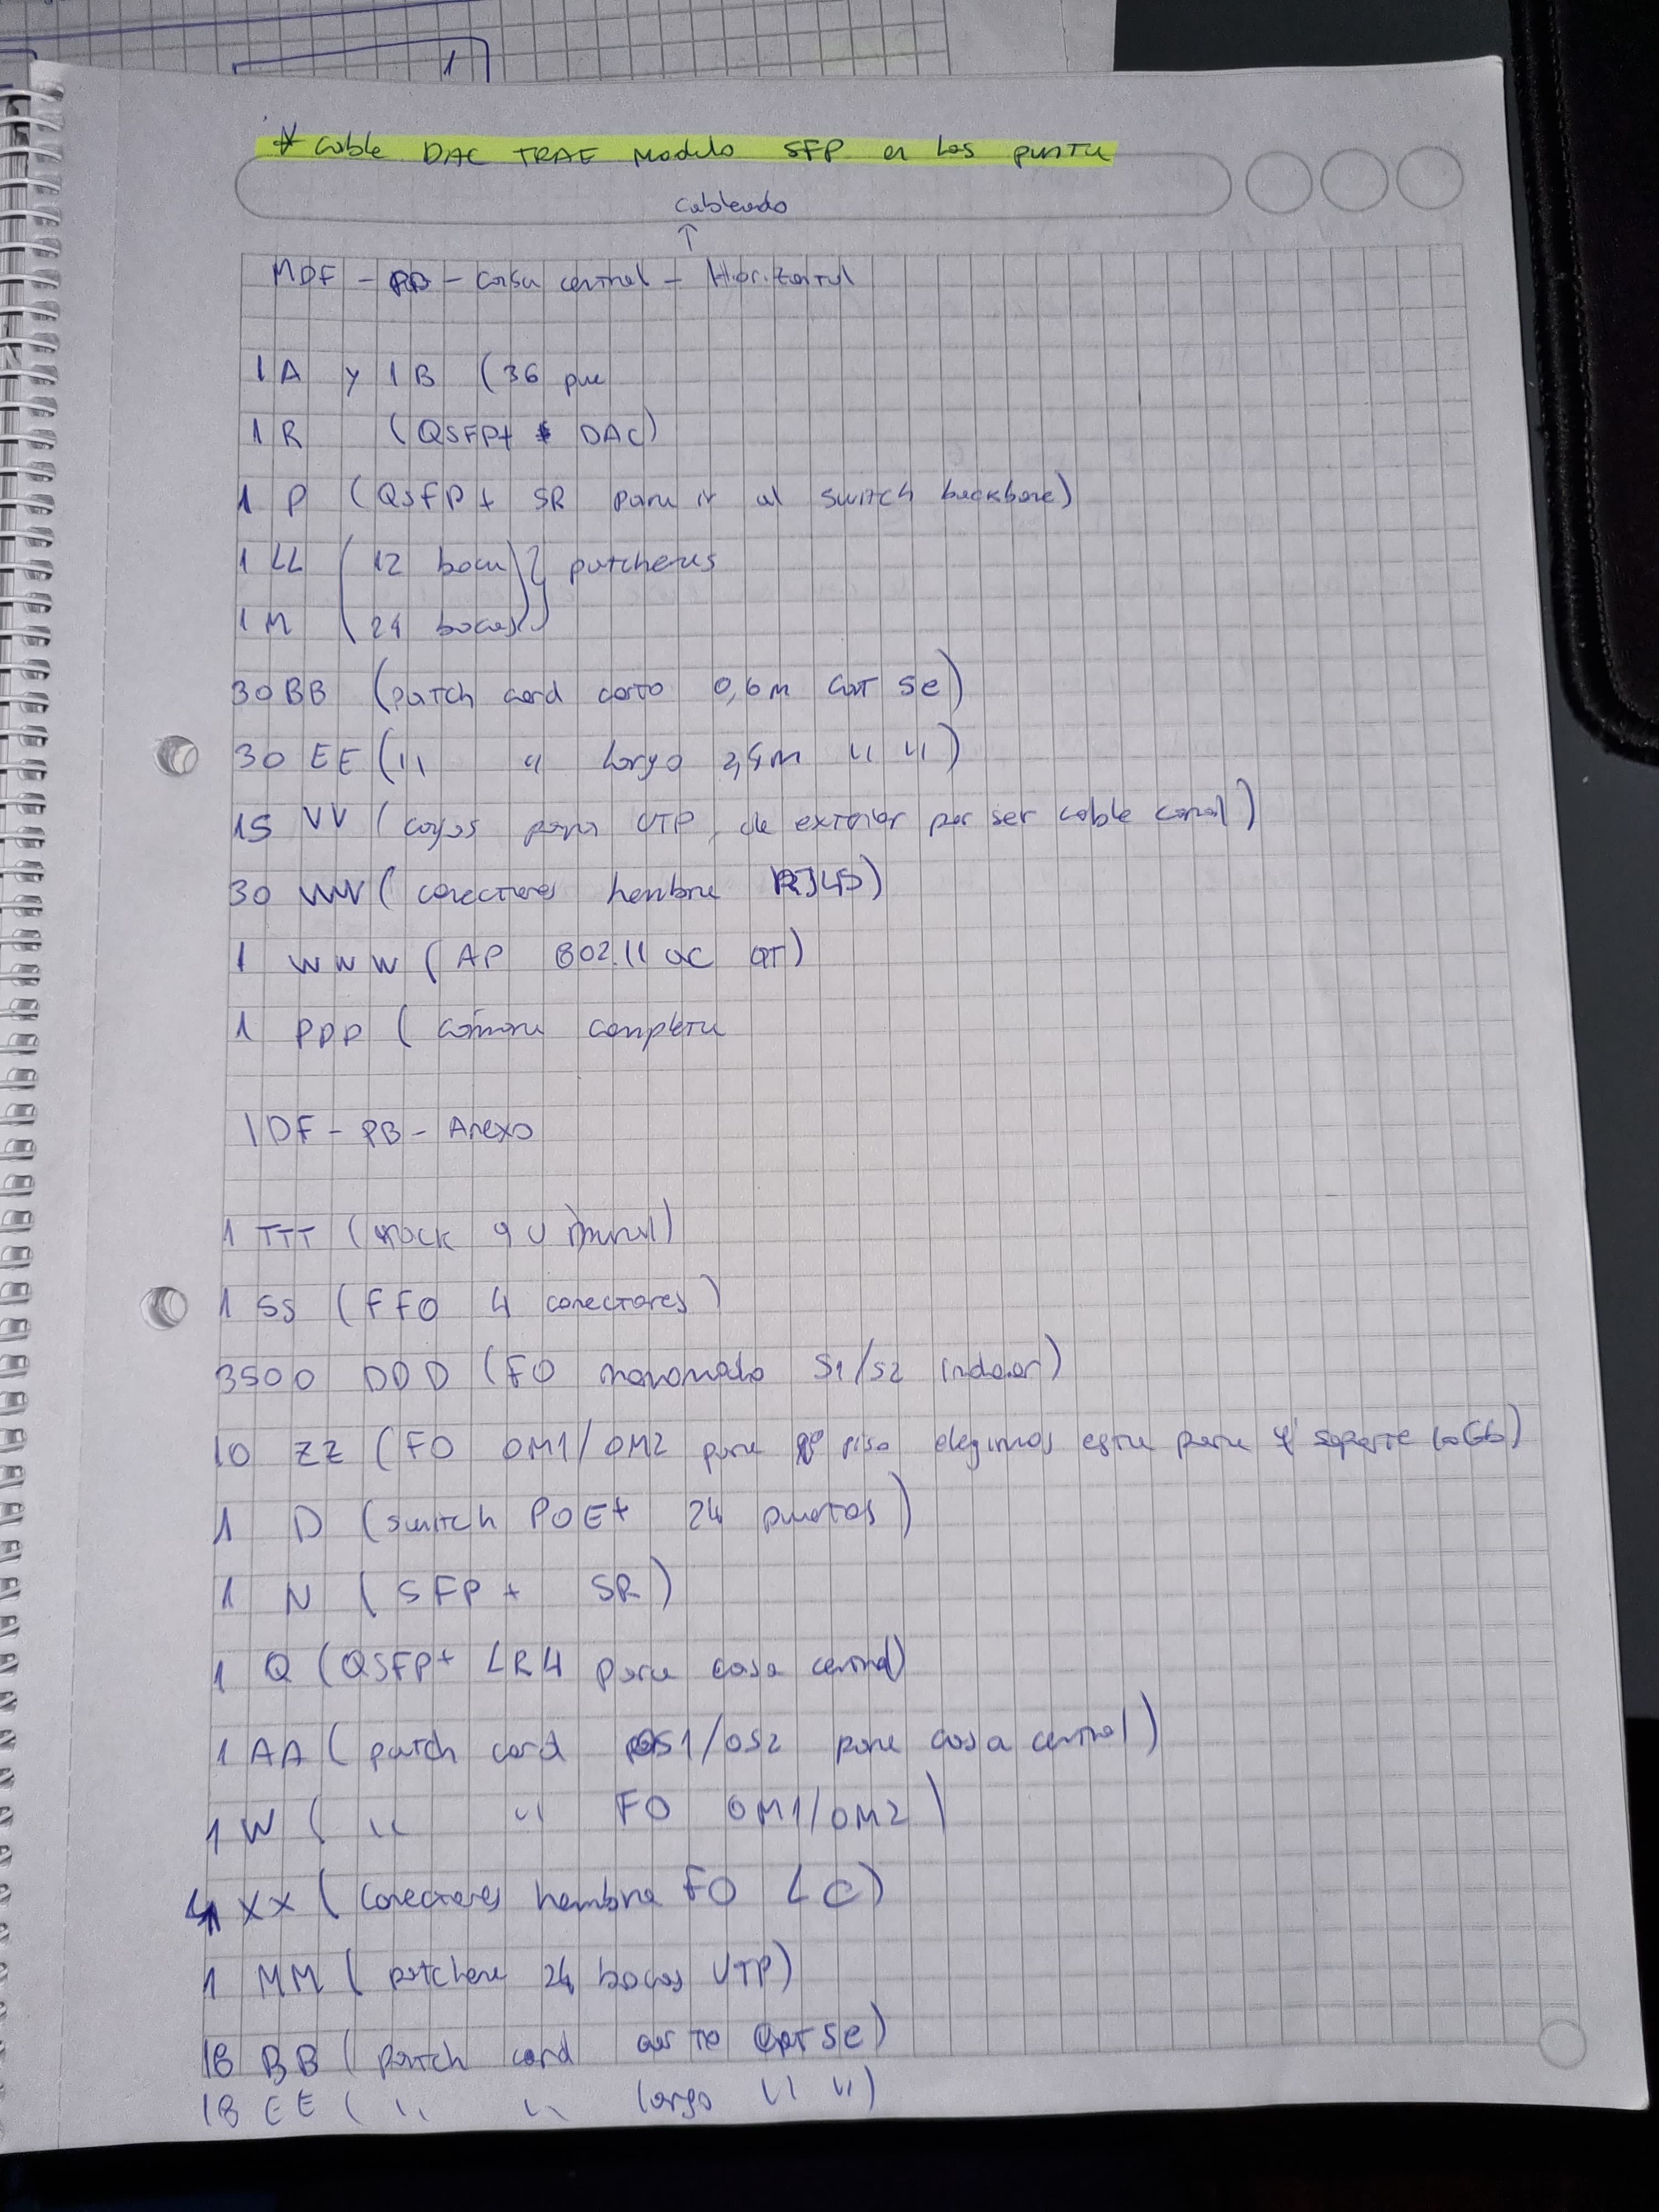 1
* Cable DAC TRAE modulo SFP en las punta
cableado
↑
MDF - PB - Casa central - Horizontal
1 A y 1 B (36 pue
1 R (QSFP+ DAC)
1 P (QSFP+ SR para ir al switch backbone)
1 LL (12 boca) } patcheras
1 M (24 bocas)
30 BB (patch cord corto 0,6m cat 5e)
30 EE (" " largo 2,4m " ")
15 VV (cajas para UTP, de exterior por ser cable canal)
30 WW (conectores hembra RJ45)
1 WWW (AP 802.11 ac QT)
1 PPP (camara completa
IDF - PB - Anexo
1 TTT (rack 9 U mural)
1 SS (FFO 4 conectores)
3500 DDD (FO monomodo S1/S2 indoor)
10 ZZ (FO OM1/OM2 para piso elegimos esta para q' soporte 10Gb)
1 D (switch POE+ 24 puertos)
1 N (SFP+ SR)
1 Q (QSFP+ LR4 para casa central)
1 AA (patch cord OS1/OS2 para casa central)
1 W (" " FO OM1/OM2)
4 XX (conectores hembra FO LC)
1 MM (patchera 24 bocas UTP)
18 BB (patch cord corto Cat 5e)
18 EE (" " largo " ")